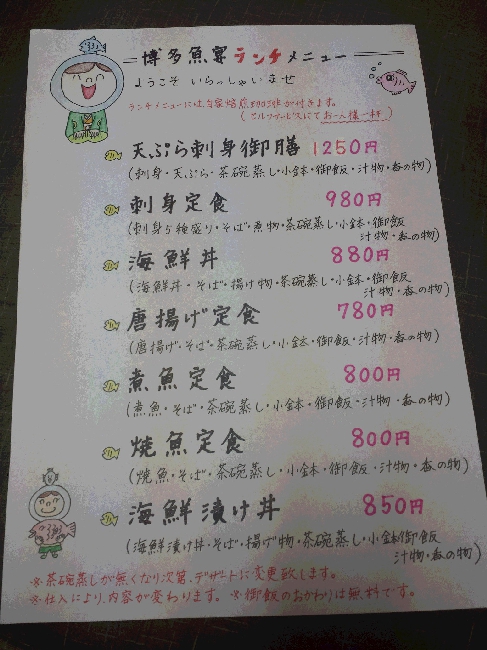 博多魚宴ランチメニュー
ようこそ いらっしゃいませ
ランチメニューには、自家焙煎珈琲が付きます。
(セルフサービスにてお一人様一杯)
天ぷら刺身御膳 1250円
(刺身・天ぷら・茶碗蒸し・小鉢・御飯・汁物・香の物)
刺身定食 980円
(刺身5種盛り・そば・煮物・茶碗蒸し・小鉢・御飯
汁物・香の物)
海鮮丼 880円
(海鮮丼・そば・揚げ物・茶碗蒸し・小鉢・御飯
汁物・香の物)
唐揚げ定食 780円
(唐揚げ・そば・茶碗蒸し・小鉢・御飯・汁物・香の物)
煮魚定食 800円
(煮魚・そば・茶碗蒸し・小鉢・御飯・汁物・香の物)
焼魚定食 800円
(焼魚・そば・茶碗蒸し・小鉢・御飯・汁物・香の物)
海鮮漬け丼 850円
(海鮮漬け丼・そば・揚げ物・茶碗蒸し・小鉢・御飯
汁物・香の物)
※茶碗蒸しが無くなり次第、デザートに変更致します。
※仕入により、内容が変わります。 ※御飯のおかわりは無料です。